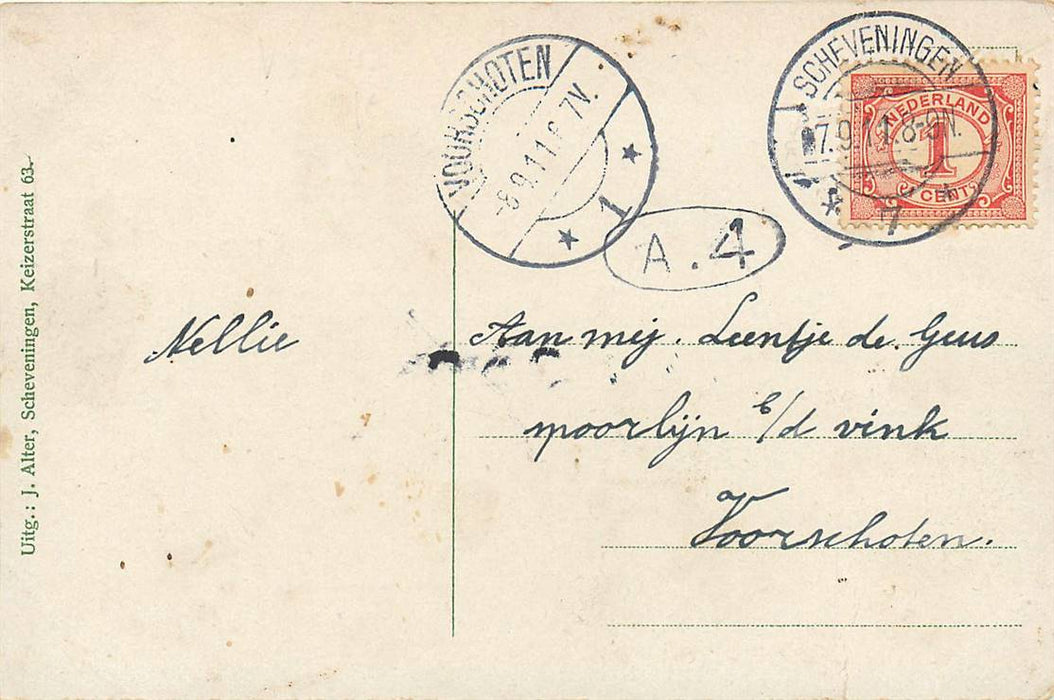 VOORSCHOTEN
-8.9.11.6-7V.
1
SCHEVENINGEN
7.9.11.8-9N.
NEDERLAND
1
CENT
A.4
Uitg.: J. Alter, Scheveningen, Keizerstraat 63.
Nellie
Aan mej. Leentje de. Geus
spoorlijn b/d vink
Voorschoten.